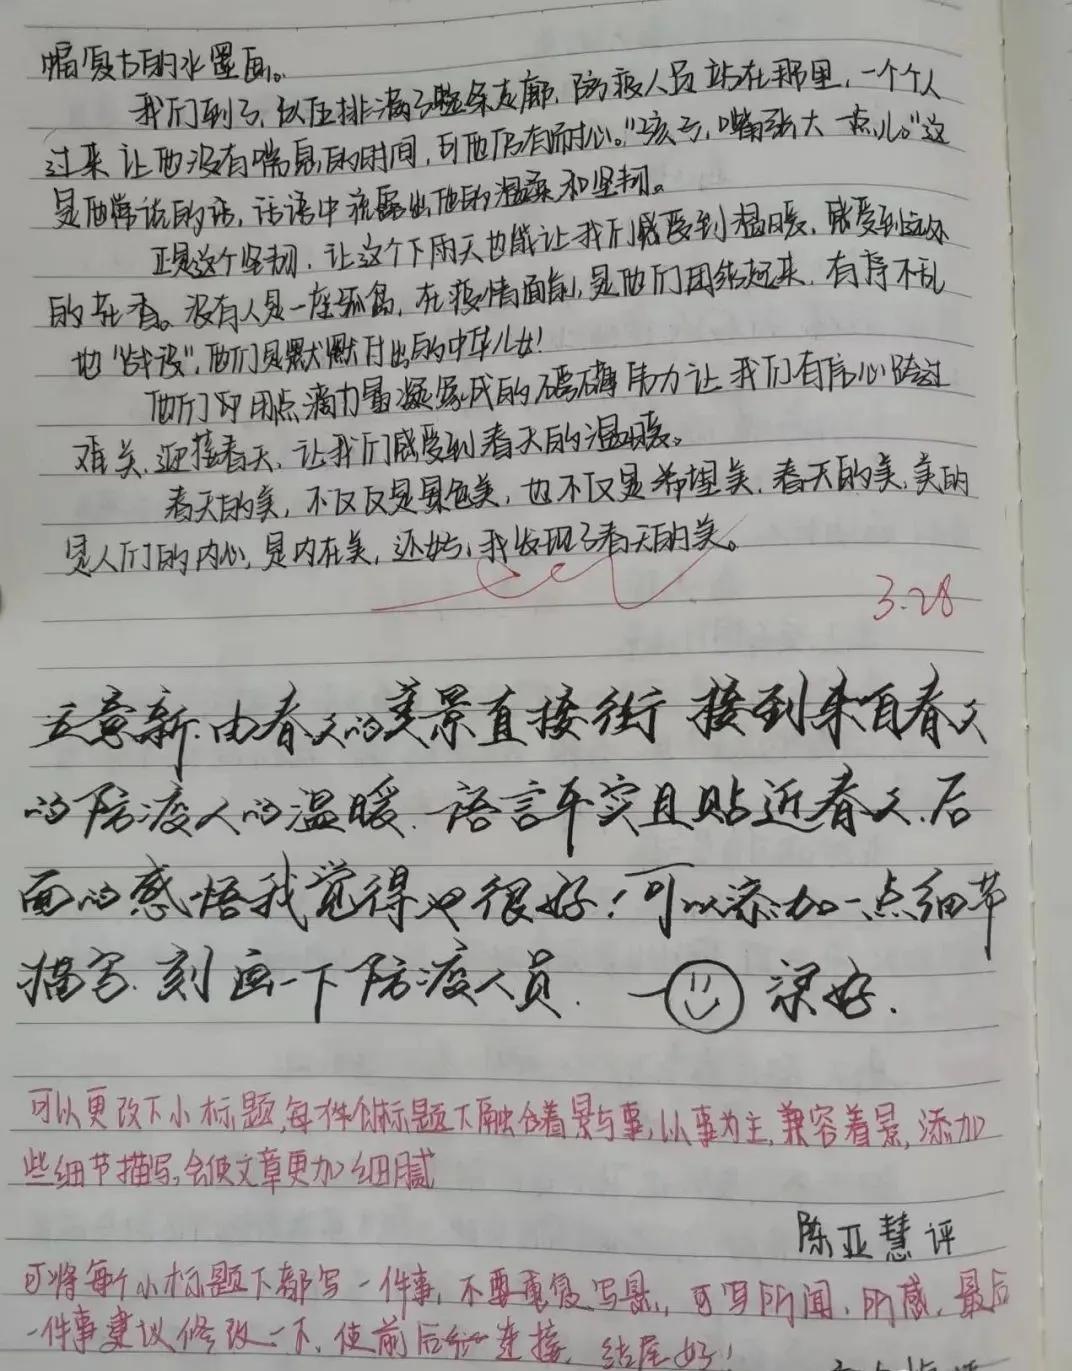 幅复古的水墨画。
我们到了,队伍排满了整条走廊,防疫人员站在那里,一个个人
过来让他没有喘息的时间,可他仍有耐心。“孩子,嘴张大一点儿。”这
是他常说的话,话语中流露出他的温柔和坚韧。
正是这个坚韧,让这个下雨天也能让我们感受到温暖,感受到远处
的花香。没有人是一座孤岛,在疫情面前,是他们团结起来,有序不乱
地“战役”,他们是默默付出的中华儿女!
他们即用点滴力量凝聚成的磅礴伟力让我们有信心跨过
难关,迎接春天,让我们感受到春天的温暖。
春天的美,不仅仅是景色美,也不仅是希望美,春天的美,美的
是人们的内心,是内在美,还好,我发现了春天的美。
3.28
立意新.由春天的美景直接衔接到来自春天
的防疫人的温暖.语言平实且贴近春天.后
面的感悟我觉得也很好!可以添加一点细节
描写.刻画一下防疫人员. 一 梁好.
可以更改下小标题,每个小标题下融合着景与事,以事为主,兼容着景,添加
些细节描写,会使文章更加细腻
陈亚慧 评
可将每个小标题下都写一件事,不要重复写景,可写所闻、所感,最后
一件事建议修改一下,使前后连接,结尾好!